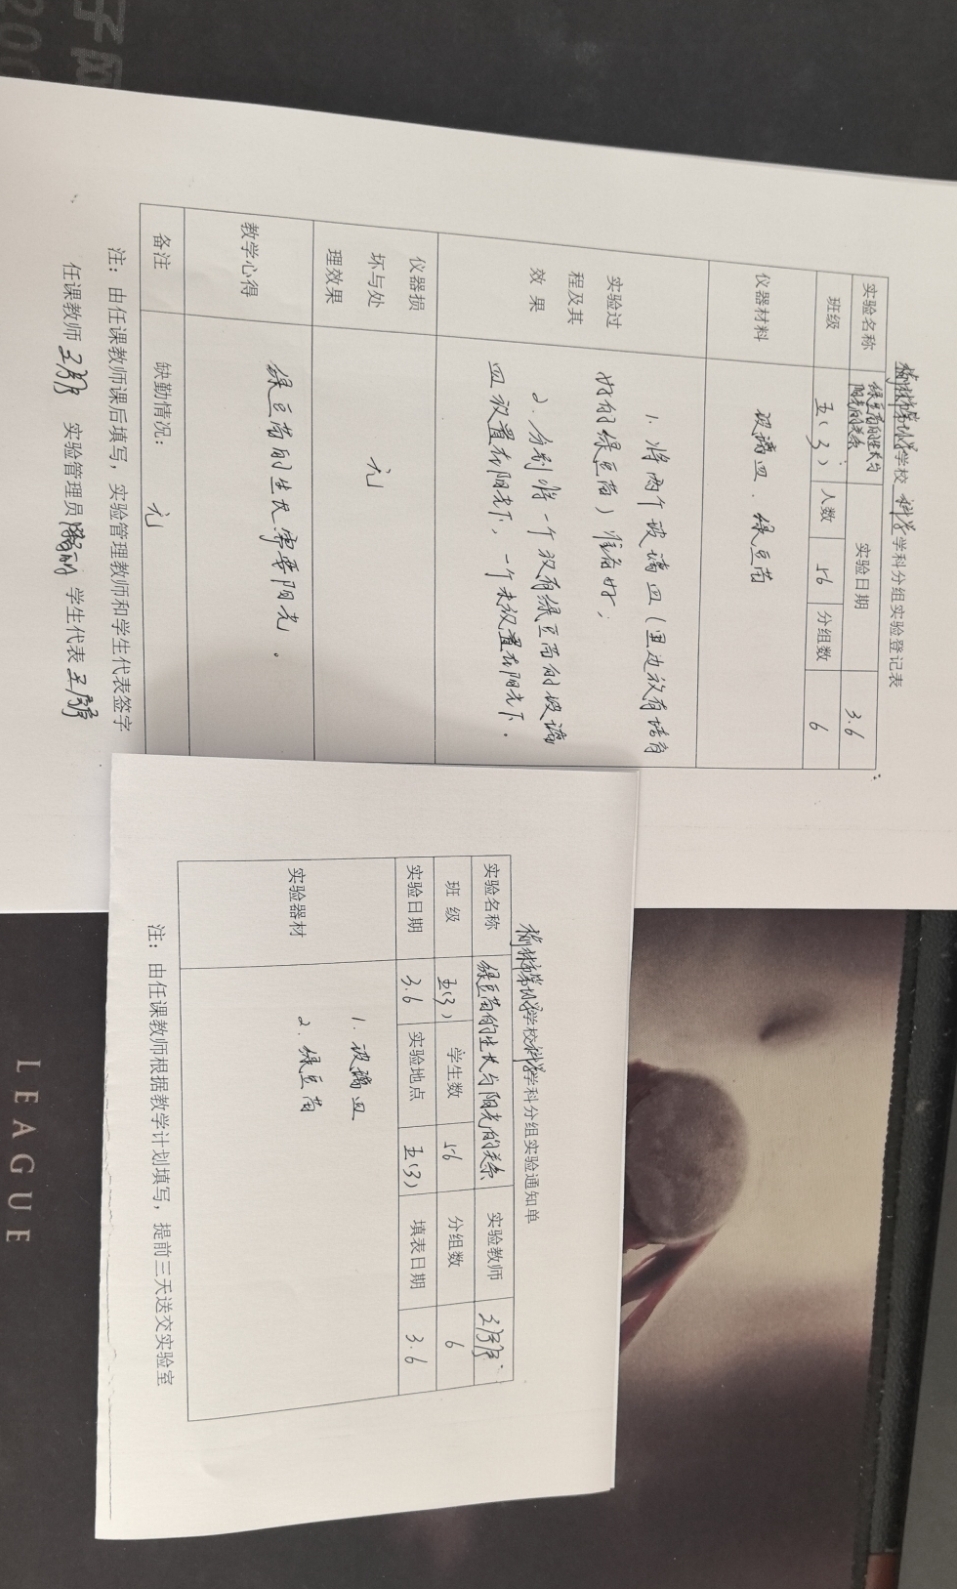 学校 科学 学科分组实验登记表
实验名称 绿豆苗的生长与阳光的关系 实验日期 3.6
班级 五(3) 人数 56 分组数 6
仪器材料 玻璃皿、绿豆苗
实验过程及其效果
1. 将两个玻璃皿(里边放有培育
好的绿豆苗)准备好;
2. 分别将一个放有绿豆苗的玻璃
皿放置在阳光下,一个未放置在阳光下.
仪器损坏与处理效果 无
教学心得 绿豆苗的生长需要阳光.
备注 缺勤情况: 无
注:由任课教师课后填写,实验管理教师和学生代表签字
任课教师 实验管理员 学生代表
学校科学学科分组实验通知单
实验名称 绿豆苗的生长与阳光的关系 实验教师
班级 五(3) 学生数 56 分组数 6
实验日期 3.6 实验地点 五(3) 填表日期 3.6
实验器材
1. 玻璃皿
2. 绿豆苗
注:由任课教师根据教学计划填写,提前三天送交实验室
LEAGUE